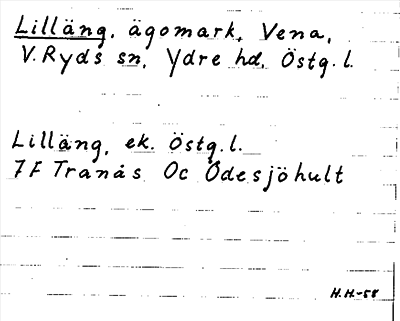 Lilläng, ägomark, Vena,
V. Ryds sn, Ydre hd, Östg. l.
Lilläng, ek. Östg. l.
7F Tranås Oc Ödesjöhult
H.H.-58